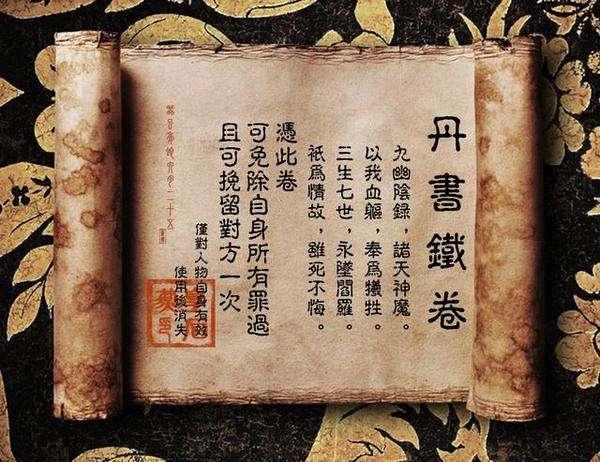 丹書鐵卷
九幽陰録，諸天神魔。
以我血軀，奉為犧牲。
三生七世，永墜閻羅。
祇為情故，雖死不悔。
憑此卷
可免除自身所有罪過
且可挽留對方一次
僅對人物自身有效
使用後消失